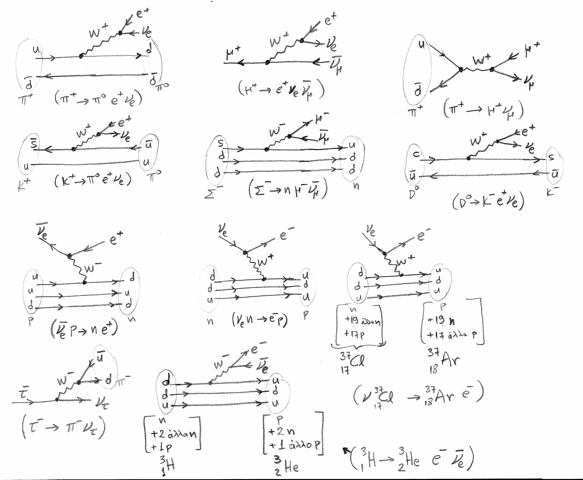 u d̄ π⁺ W⁺ e⁺ νₑ d d̄ π⁰
(π⁺→π⁰ e⁺νₑ)
μ⁺ W⁺ e⁺ νₑ ν̄μ
(μ⁺→e⁺νₑ ν̄μ)
u d̄ π⁺ W⁺ μ⁺ νμ
(π⁺→μ⁺νμ)
s̄ u K⁺ W⁺ e⁺ νₑ ū u π⁰
(K⁺→π⁰e⁺νₑ)
s d d Σ⁻ W⁻ μ⁻ ν̄μ u d d n
(Σ⁻→n μ⁻ν̄μ)
c ū D⁰ W⁺ e⁺ νₑ s ū K⁻
(D⁰→K⁻e⁺νₑ)
ν̄ₑ e⁺ W⁻ u u d p d u d n
(ν̄ₑ p→n e⁺)
νₑ e⁻ W⁺ d d u n u d u p
(νₑ n→e⁻p)
νₑ e⁻ W⁺ d d u u d u
n
+19 άλλα n
+17p
³⁷₁₇Cl
p
+19 n
+17 άλλα p
³⁷₁₈Ar
(ν ³⁷₁₇Cl → ³⁷₁₈Ar e⁻)
τ⁻ W⁻ ū d π⁻ ντ
(τ⁻→π⁻ντ)
d d u W⁻ e⁻ ν̄ₑ u d u
n
+2 άλλα n
+1p
³₁H
p
+2n
+1 άλλο p
³₂He
(³₁H→³₂He e⁻ ν̄ₑ)